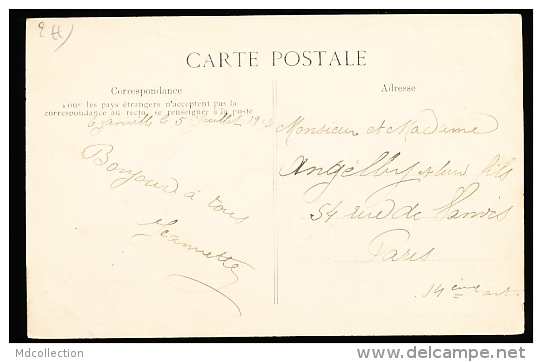 CARTE POSTALE
Correspondance
Tous les pays étrangers n'acceptent pas la
correspondance au recto, se renseigner à la poste
Ezanville le 5 Juillet 19
Bonjour à tous
Jeannette
Adresse
Monsieur et Madame
Angelby et leur fils
54 rue de Vanves
Paris
14ème art.
Mdcollection
www.delcampe.net